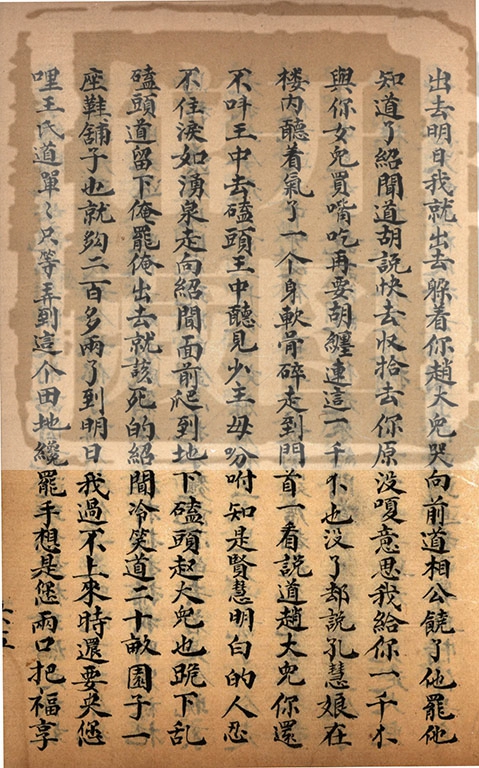 出去明日我就出去躲着你趙大兒哭向前道相公饒了他罷他
知道了紹聞道胡說快去收拾去你原没嗄意思我給你一千不
與你女兒買嘴吃再要胡纏連這一千不也没了却說孔慧娘在
楼内聽着氣了一个身軟骨碎走到門首一看說道趙大兒你還
不呌王中去磕頭王中聽見少主母吩咐知是賢慧明白的人忍
不住淚如湧泉走向紹聞面前爬到地下磕頭趙大兒也跪下乱
磕頭道留下俺罷俺出去就該死的紹聞冷笑道二十畝園子一
座鞋舖子也就勾二百多兩了到明日我過不上來時還要央您
哩王氏道單〻只等弄到這个田地纔罷手想是您兩口把福享